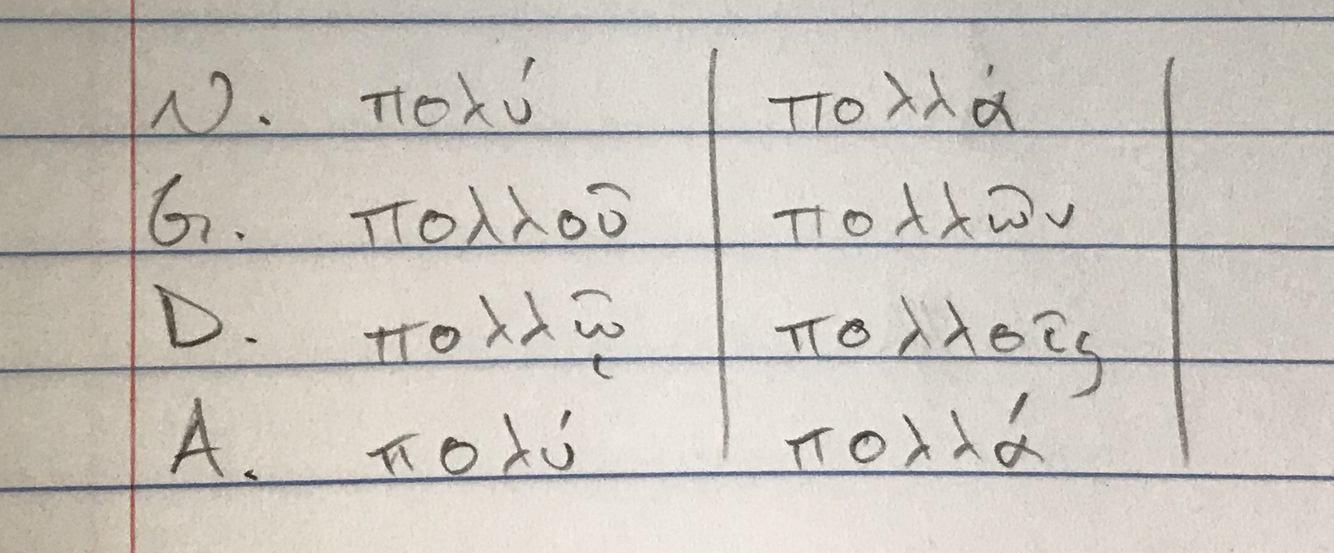 N. πολύ πολλά
G. πολλοῦ πολλῶν
D. πολλῷ πολλοῖς
A. πολύ πολλά